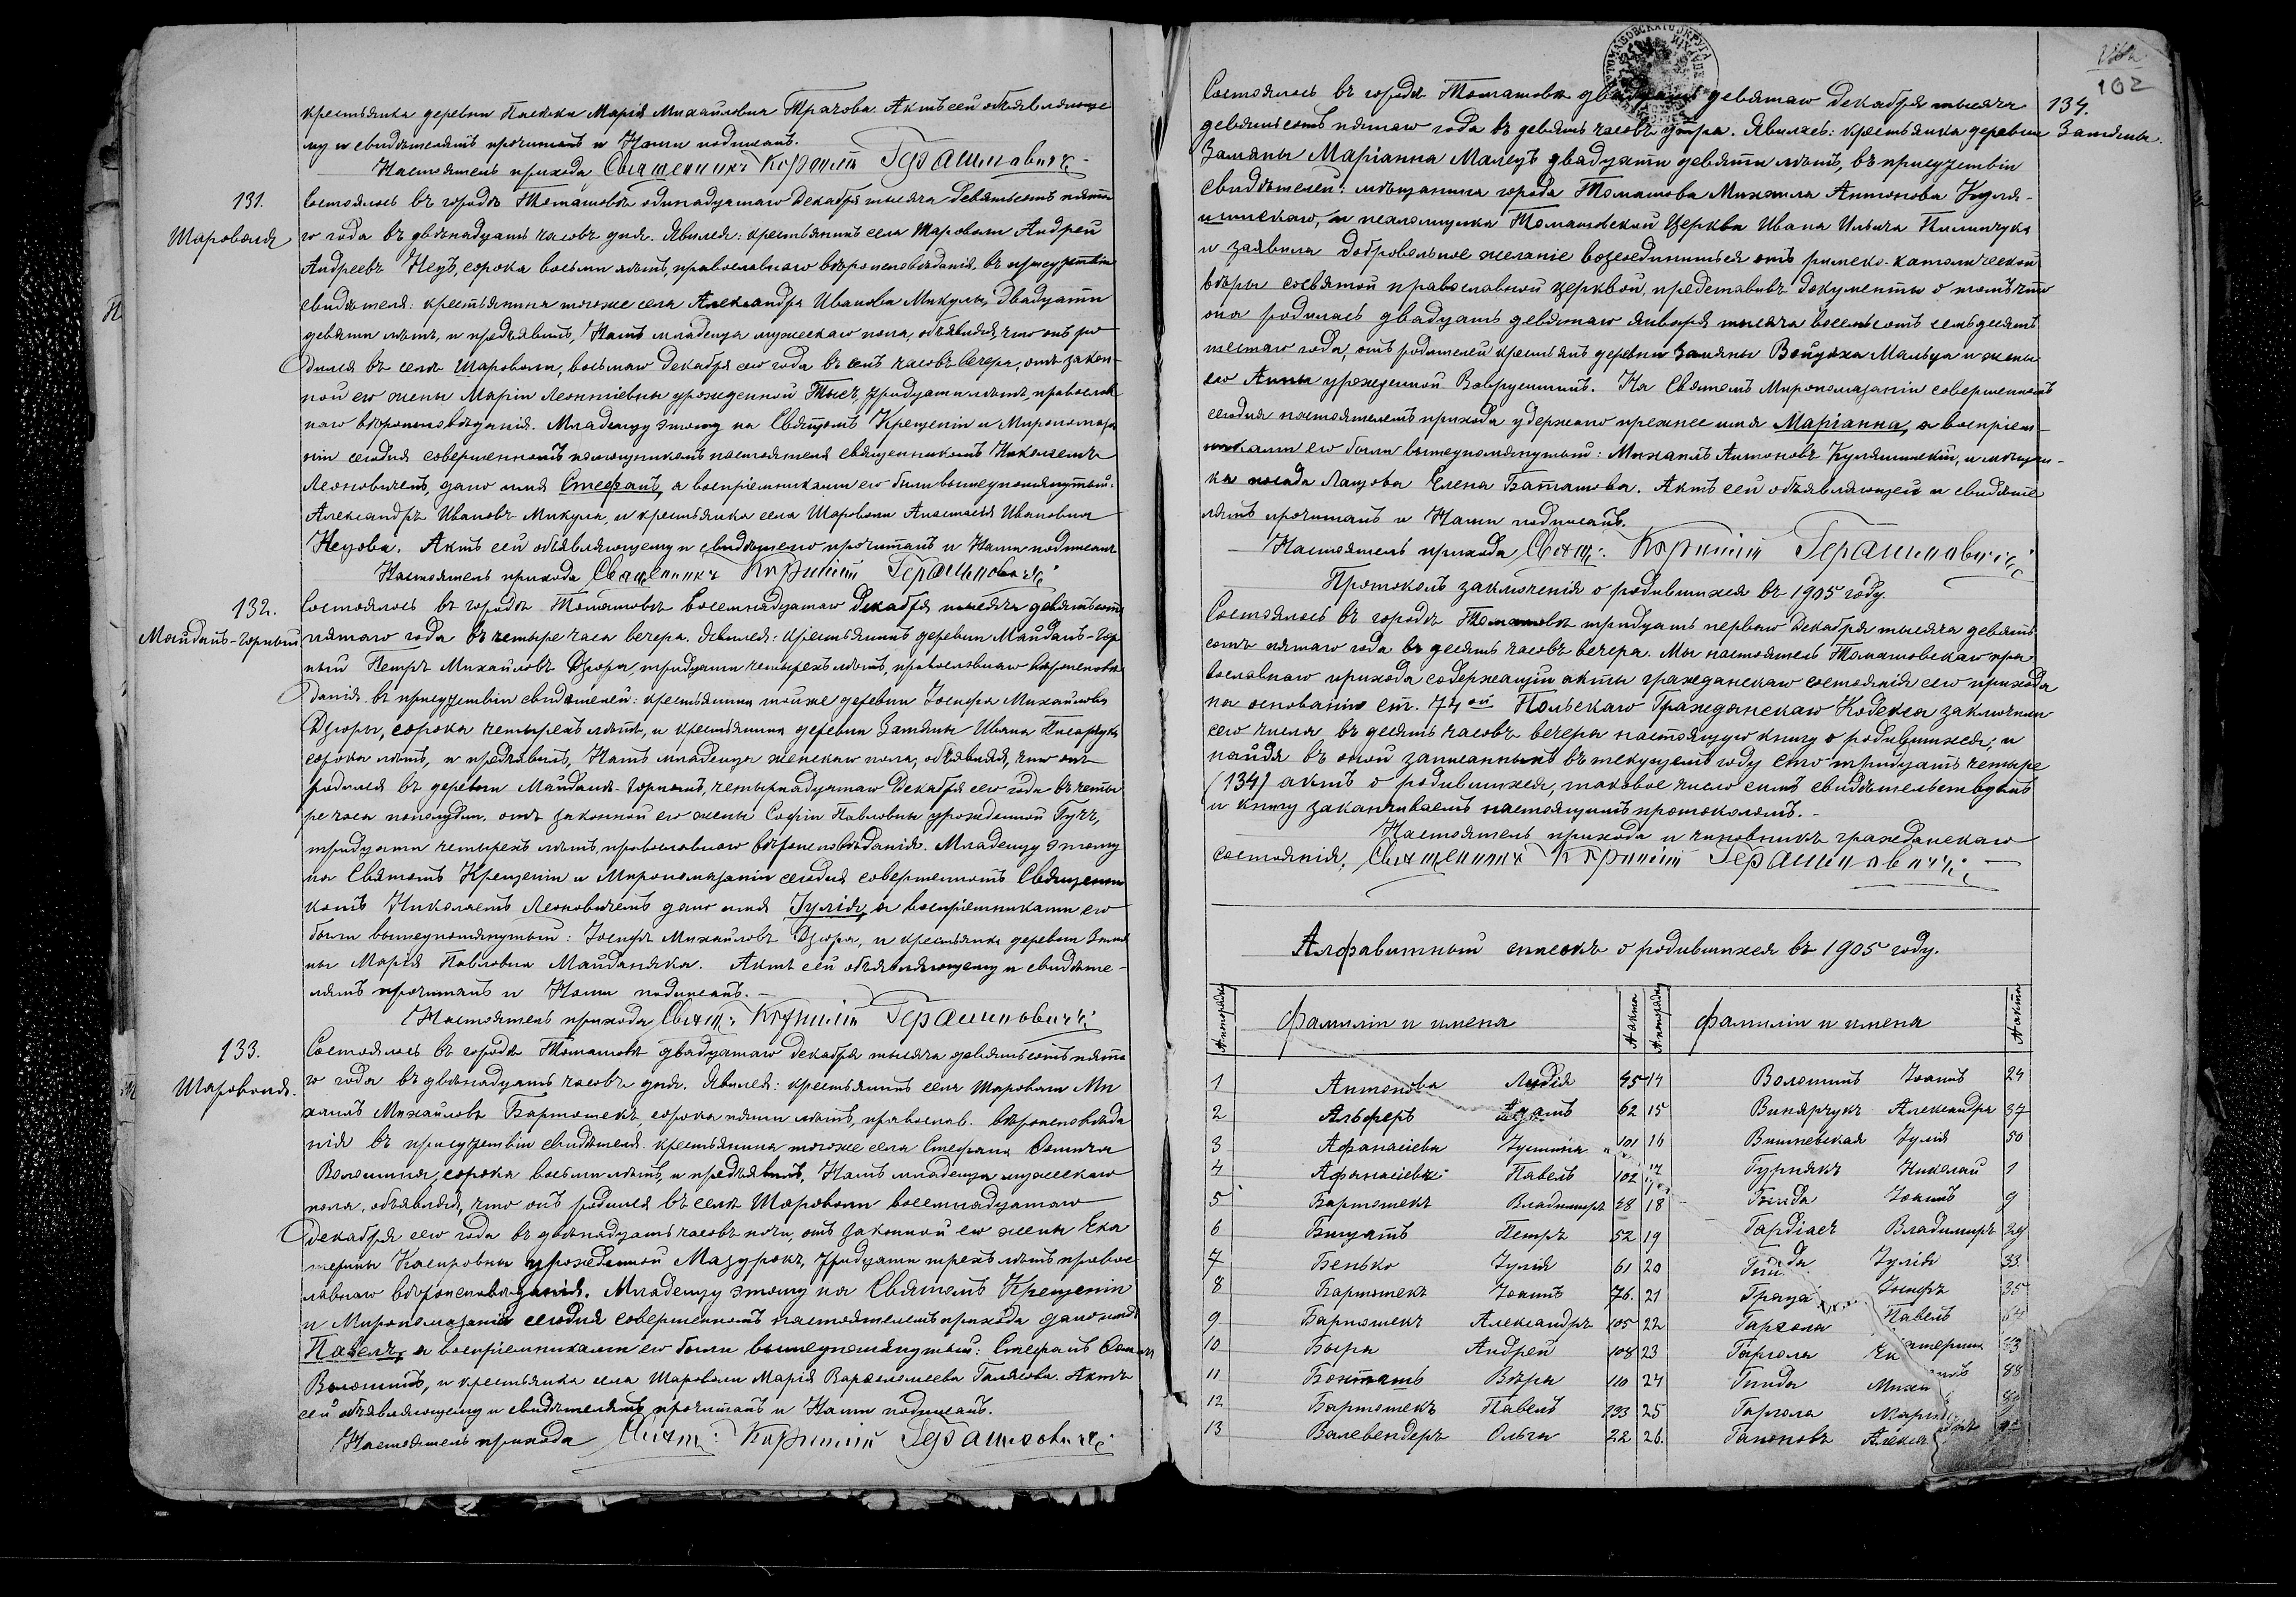 крестьянка деревни Пасѣки Марія Михайловна Трачова. Актъ сей объявляюще
му и свидѣтелямъ прочитанъ и Нами подписанъ.
Настоятель прихода Священникъ Корнилій Герашиновичъ
131.
Шароволя
Состоялось въ городѣ Томашовѣ одинадцатаго Декабря тысяча девятьсотъ пята
го года въ двѣнадцать часовъ дня. Явился: крестьянинъ села Шароволи Андрей
Андреевъ Нецъ, сорока восьми лѣтъ, православнаго вѣроисповѣданія, въ присутствіи
свидѣтеля: крестьянина тогоже села Александра Иванова Микулы, двадцати
девяти лѣтъ, и предъявилъ Намъ младенца мужескаго пола, объявляя, что онъ ро
дился въ селѣ Шароволи, восьмаго Декабря сего года въ семь часовъ вечера, отъ закон-
ной его жены Маріи Леонтіевны урожденной Тысъ, тридцати лѣтъ, православ
наго вѣроисповѣданія. Младенцу этому на Святомъ Крещеніи и Миропомаза
ніи сегодня совершенномъ помощникомъ настоятеля священникомъ Николаемъ
Леоновичемъ, дано имя Стефанъ, а воспріемниками его были вышеупомянутый:
Александръ Ивановъ Микула, и крестьянка села Шароволи Анастасія Ивановна
Нецова. Актъ сей объявляющему и свидѣтелю прочитанъ и Нами подписанъ
Настоятель прихода Священникъ Корнилій Герашиновичъ
132.
Майданъ-Горный
Состоялось въ городѣ Томашовѣ восемнадцатаго Декабря тысяча девятьсотъ
пятаго года въ четыре часа вечера. Явился: крестьянинъ деревни Майданъ-Гор
ный Петръ Михайловъ Дзюра, тридцати четырехъ лѣтъ, православнаго вѣроисповѣ
данія въ присутствіи свидѣтелей: крестьянина тойже деревни Іосифа Михайлова
Дзюры, сорока четырехъ лѣтъ, и крестьянина деревни Замяны Ивана Писарчука
сорока лѣтъ, и предъявилъ Намъ младенца женскаго пола, объявляя, что онъ
родился въ деревни Майданъ-Горномъ, четырнадцатаго Декабря сего года въ четы
ре часа пополудни, отъ законной его жены Софіи Павловны урожденной Бучъ,
тридцати четырехъ лѣтъ, православнаго вѣроисповѣданія. Младенцу этому
на Святомъ Крещеніи и Миропомазаніи сегодня совершенномъ Священни
комъ Николаемъ Леоновичемъ дано имя Іулія, а воспріемниками его
были вышеупомянутый: Іосифъ Михайловъ Дзюра, и крестьянка деревни Замя
ны Марія Павловна Майданяка. Актъ сей объявляющему и свидѣте-
лямъ прочитанъ и Нами подписанъ.
Настоятель прихода Свящ: Корнилій Герашиновичъ
133.
Шароволя.
Состоялось въ городѣ Томашовѣ двадцатаго декабря тысяча девятьсотъ пята
го года въ двѣнадцать часовъ дня. Явился: крестьянинъ села Шароволи Ми
хаилъ Михайловъ Бартошекъ, сорока пяти лѣтъ, православ. вѣроисповѣда
нія въ присутствіи свидѣтеля: крестьянина тогоже села Стефана Осипа
Волошина, сорока восьми лѣтъ, и предъявилъ Намъ младенца мужескаго
пола, объявляя, что онъ родился въ селѣ Шароволи восемнадцатаго
Декабря сего года въ двѣнадцать часовъ ночи, отъ законной его жены Ека
терины Каспровны урожденной Мазурокъ, тридцати трехъ лѣтъ правос
лавнаго вѣроисповѣданія. Младенцу этому на Святомъ Крещеніи
и Миропомазаніи сегодня совершенномъ настоятелемъ прихода дано имя
Павелъ, а воспріемниками его были вышеупомянутый: Стефанъ
Волошинъ, и крестьянка села Шароволи Марія Варѳоломеева Галясова. Актъ
сей объявляющему и свидѣтелямъ прочитанъ и Нами подписанъ.
Настоятель прихода Свящ: Корнилій Герашиновичъ
102
134.
Замяны.
Состоялось въ городѣ Томашовѣ двадцать девятаго Декабря тысяча
девятьсотъ пятаго года въ девять часовъ утра. Явилась: крестьянка деревни
Замяны Маріанна Малецъ двадцати девяти лѣтъ, въ присутствіи
свидѣтелей: мѣщанина города Томашова Михаила Антонова Куля-
шинскаго, и псаломщика Томашовской Церкви Ивана Ильича Пилипчука
и заявила добровольное желаніе возсоединиться отъ римско-католической
вѣры сосвятой православной церквой, представивъ документы о томъ что
она родилась двадцать девятаго января тысяча восемьсотъ семьдесятъ
шестаго года, отъ родителей крестьянъ деревни Замяны Войцеха Мальца и жены
его Анны урожденной Ваврусишинъ. На Святомъ Миропомазаніи совершенномъ
сегодня настоятелемъ прихода удержано прежнее имя Маріанна, а воспріем-
никами его были вышеупомянутый: Михаилъ Антоновъ Куляшинскій, и мѣщан-
ка посада Лащова Елена Баташова. Актъ сей объявляющей и свидѣте
лямъ прочитанъ и Нами подписанъ.
Настоятель прихода Свящ: Корнилій Герашиновичъ
Протоколъ заключенія о родившихся въ 1905 году.
Состоялось въ городѣ Томашовѣ тридцать перваго Декабря тысяча девять
сотъ пятаго года въ десять часовъ вечера. Мы настоятель Томашовскаго пра
вославнаго прихода содержащій акты гражданскаго состоянія сего прихода
на основаніи ст. 74ой Польскаго Гражданскаго Кодекса заключили
сего числа въ десять часовъ вечера настоящую книгу о родившихся; и
найдя въ оной записанныхъ въ текущемъ году сто тридцать четыре
(134) актъ о родившихся, таковое число симъ свидѣтельствуемъ
и книгу заканчиваемъ настоящимъ протоколомъ.
Настоятель прихода и чиновникъ гражданскаго
состоянія, Священникъ Корнилій Герашиновичъ
Алфавитный списокъ о родившихся въ 1905 году.
№ порядку Фамиліи и имена № акта № порядку Фамиліи и имена № акта
1 Антонова Лидія 45 14 Волошинъ Іоаннъ 24
2 Альферъ Адамъ 62 15 Винярчукъ Александра 37
3 Афанасіева Іустина 101 16 Вишневская Іулія 50
4 Афанасіевъ Павелъ 102 17 Гурнякъ Николай 1
5 Бартошекъ Владиміръ 28 18 Гнида Іоаннъ 9
6 Бицанъ Петръ 52 19 Гардіасъ Владиміръ 29
7 Бенько Іулія 61 20 Гнида Іулія 33
8 Бартошекъ Іоаннъ 76. 21 Граца Іосифъ 35
9 Бартошекъ Александръ 105 22 Гаргола Павелъ 64
10 Бзыра Андрей 108 23 Гаргола Екатерина
11 Вѣра 110 24 Гнида 88
12 Бартошекъ Павелъ 133 25 Гаргола
13 Валевендеръ Ольга 22 26. Гапоновъ